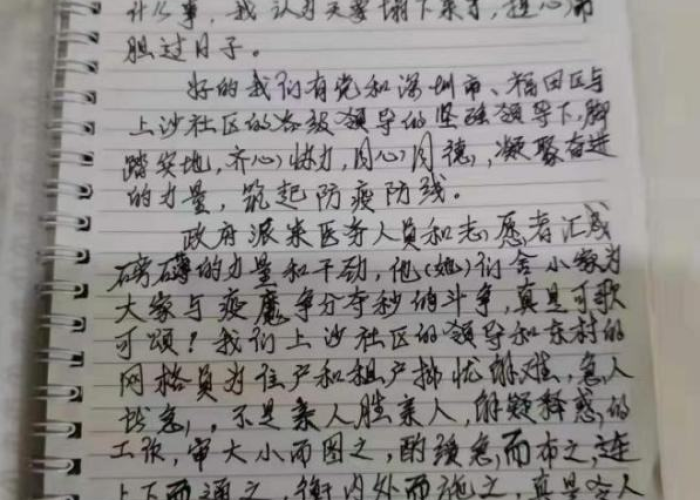 什么事，我认为天要塌下来了，提心吊
胆过日子。
好的我们有党和深圳市、福田区与
上沙社区的各级领导的坚强领导下，脚
踏实地，齐心协力，同心同德，凝聚奋进
的力量，筑起防疫防线。
政府派来医务人员和志愿者汇成
磅礴的力量和干劲，他(她)们舍小家为
大家与疫魔争分夺秒的斗争，真是可歌
可颂？我们上沙社区的领导和东村的
网格员为住户和租户排忧解难，急人
所急，。不是亲人胜亲人，解疑释惑，的
工作，审大小而图之，酌缓急而布之，连
上下而通之，衡内外而施之，真是令人